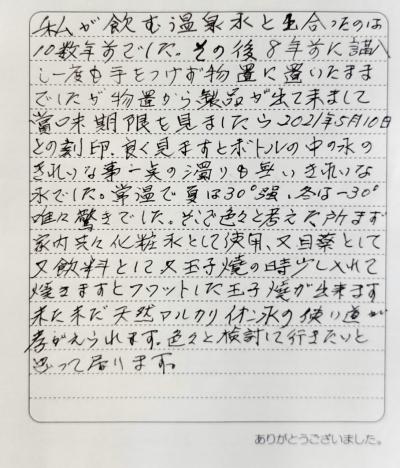 私が飲むう温泉水と出合ったのは
10数年前でした。その後8年前に購入
し一度も手をつけず物置に置いたまま
でしたが物置から製品が出て来まして
賞味期限を見ましたら2021年5月10日
との刻印、良く見ますとボトルの中の水の
きれいな事一点の濁りも無いきれいな
水でした。常温で夏は30°強、冬は-30°
唯々驚きでした。そこで色々と考えた所まず
家内共々化粧水として使用、又目薬として
又飲料として又玉子焼の時少し入れて
焼きますとフワットした玉子焼が出来ます
まだまだ天然アルカリイオン水の使い道が
考がえられます。色々と検討して行きたいと
思って居ります。
ありがとうございました。